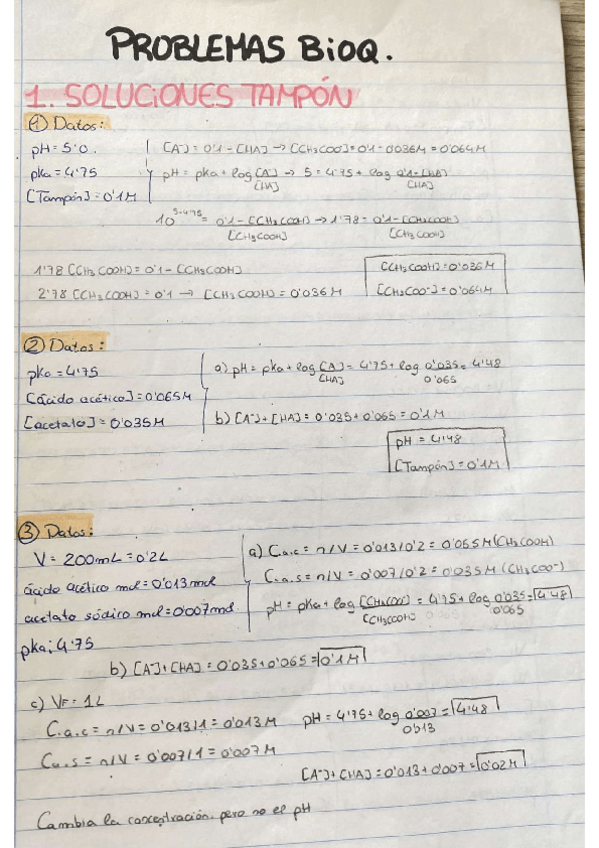 PROBLEMAS BIOQ.
1. SOLUCIONES TAMPÓN
① Datos:
pH = 5'0.
pka = 4'75
[Tampón] = 0'1M
[A-] = 0'1 - [HA] → [CH3COO-] = 0'1 - 0'036M = 0'064M
pH = pka + log [A-]/[HA] → 5 = 4'75 + log 0'1-[HA]/[HA]
10^5-4'75 = 0'1-[CH3COOH]/[CH3COOH] → 1'78 = 0'1-[CH3COOH]/[CH3COOH]
1'78 [CH3COOH] = 0'1 - [CH3COOH]
2'78 [CH3COOH] = 0'1 → [CH3COOH] = 0'036M
[CH3COOH] = 0'036M
[CH3COO-] = 0'064M
② Datos:
pka = 4'75
[ácido acético] = 0'065M
[acetato] = 0'035M
a) pH = pka + log [A-]/[HA] = 4'75 + log 0'035/0'065 = 4'48
b) [A-] + [HA] = 0'035 + 0'065 = 0'1M
pH = 4'48
[Tampón] = 0'1M
③ Datos:
V = 200mL = 0'2L
ácido acético mol = 0'013mol
acetato sódico mol = 0'007mol
pka: 4'75
a) C.a.c = n/V = 0'013/0'2 = 0'065M (CH3COOH)
C.a.s = n/V = 0'007/0'2 = 0'035M (CH3COO-)
pH = pka + log [CH3COO-]/[CH3COOH] = 4'75 + log 0'035/0'065 = 4'48
b) [A-] + [HA] = 0'035 + 0'065 = 0'1M
c) VF = 1L
C.a.c = n/V = 0'013/1 = 0'013M
pH = 4'75 + log 0'007/0'013 = 4'48
C.a.s = n/V = 0'007/1 = 0'007M
[A-] + [HA] = 0'013 + 0'007 = 0'02M
Cambia la concentración pero no el pH